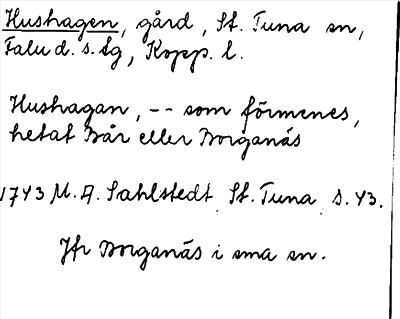 Hushagen, gård, St. Tuna sn,
Falu d. s. lg, Kopp. l.
Hushagan, -- som förmenes,
hetat Bår eller Borganäs
1743 M. A. Sahlstedt St. Tuna s. 43.
Jfr Borganäs i sma sn.